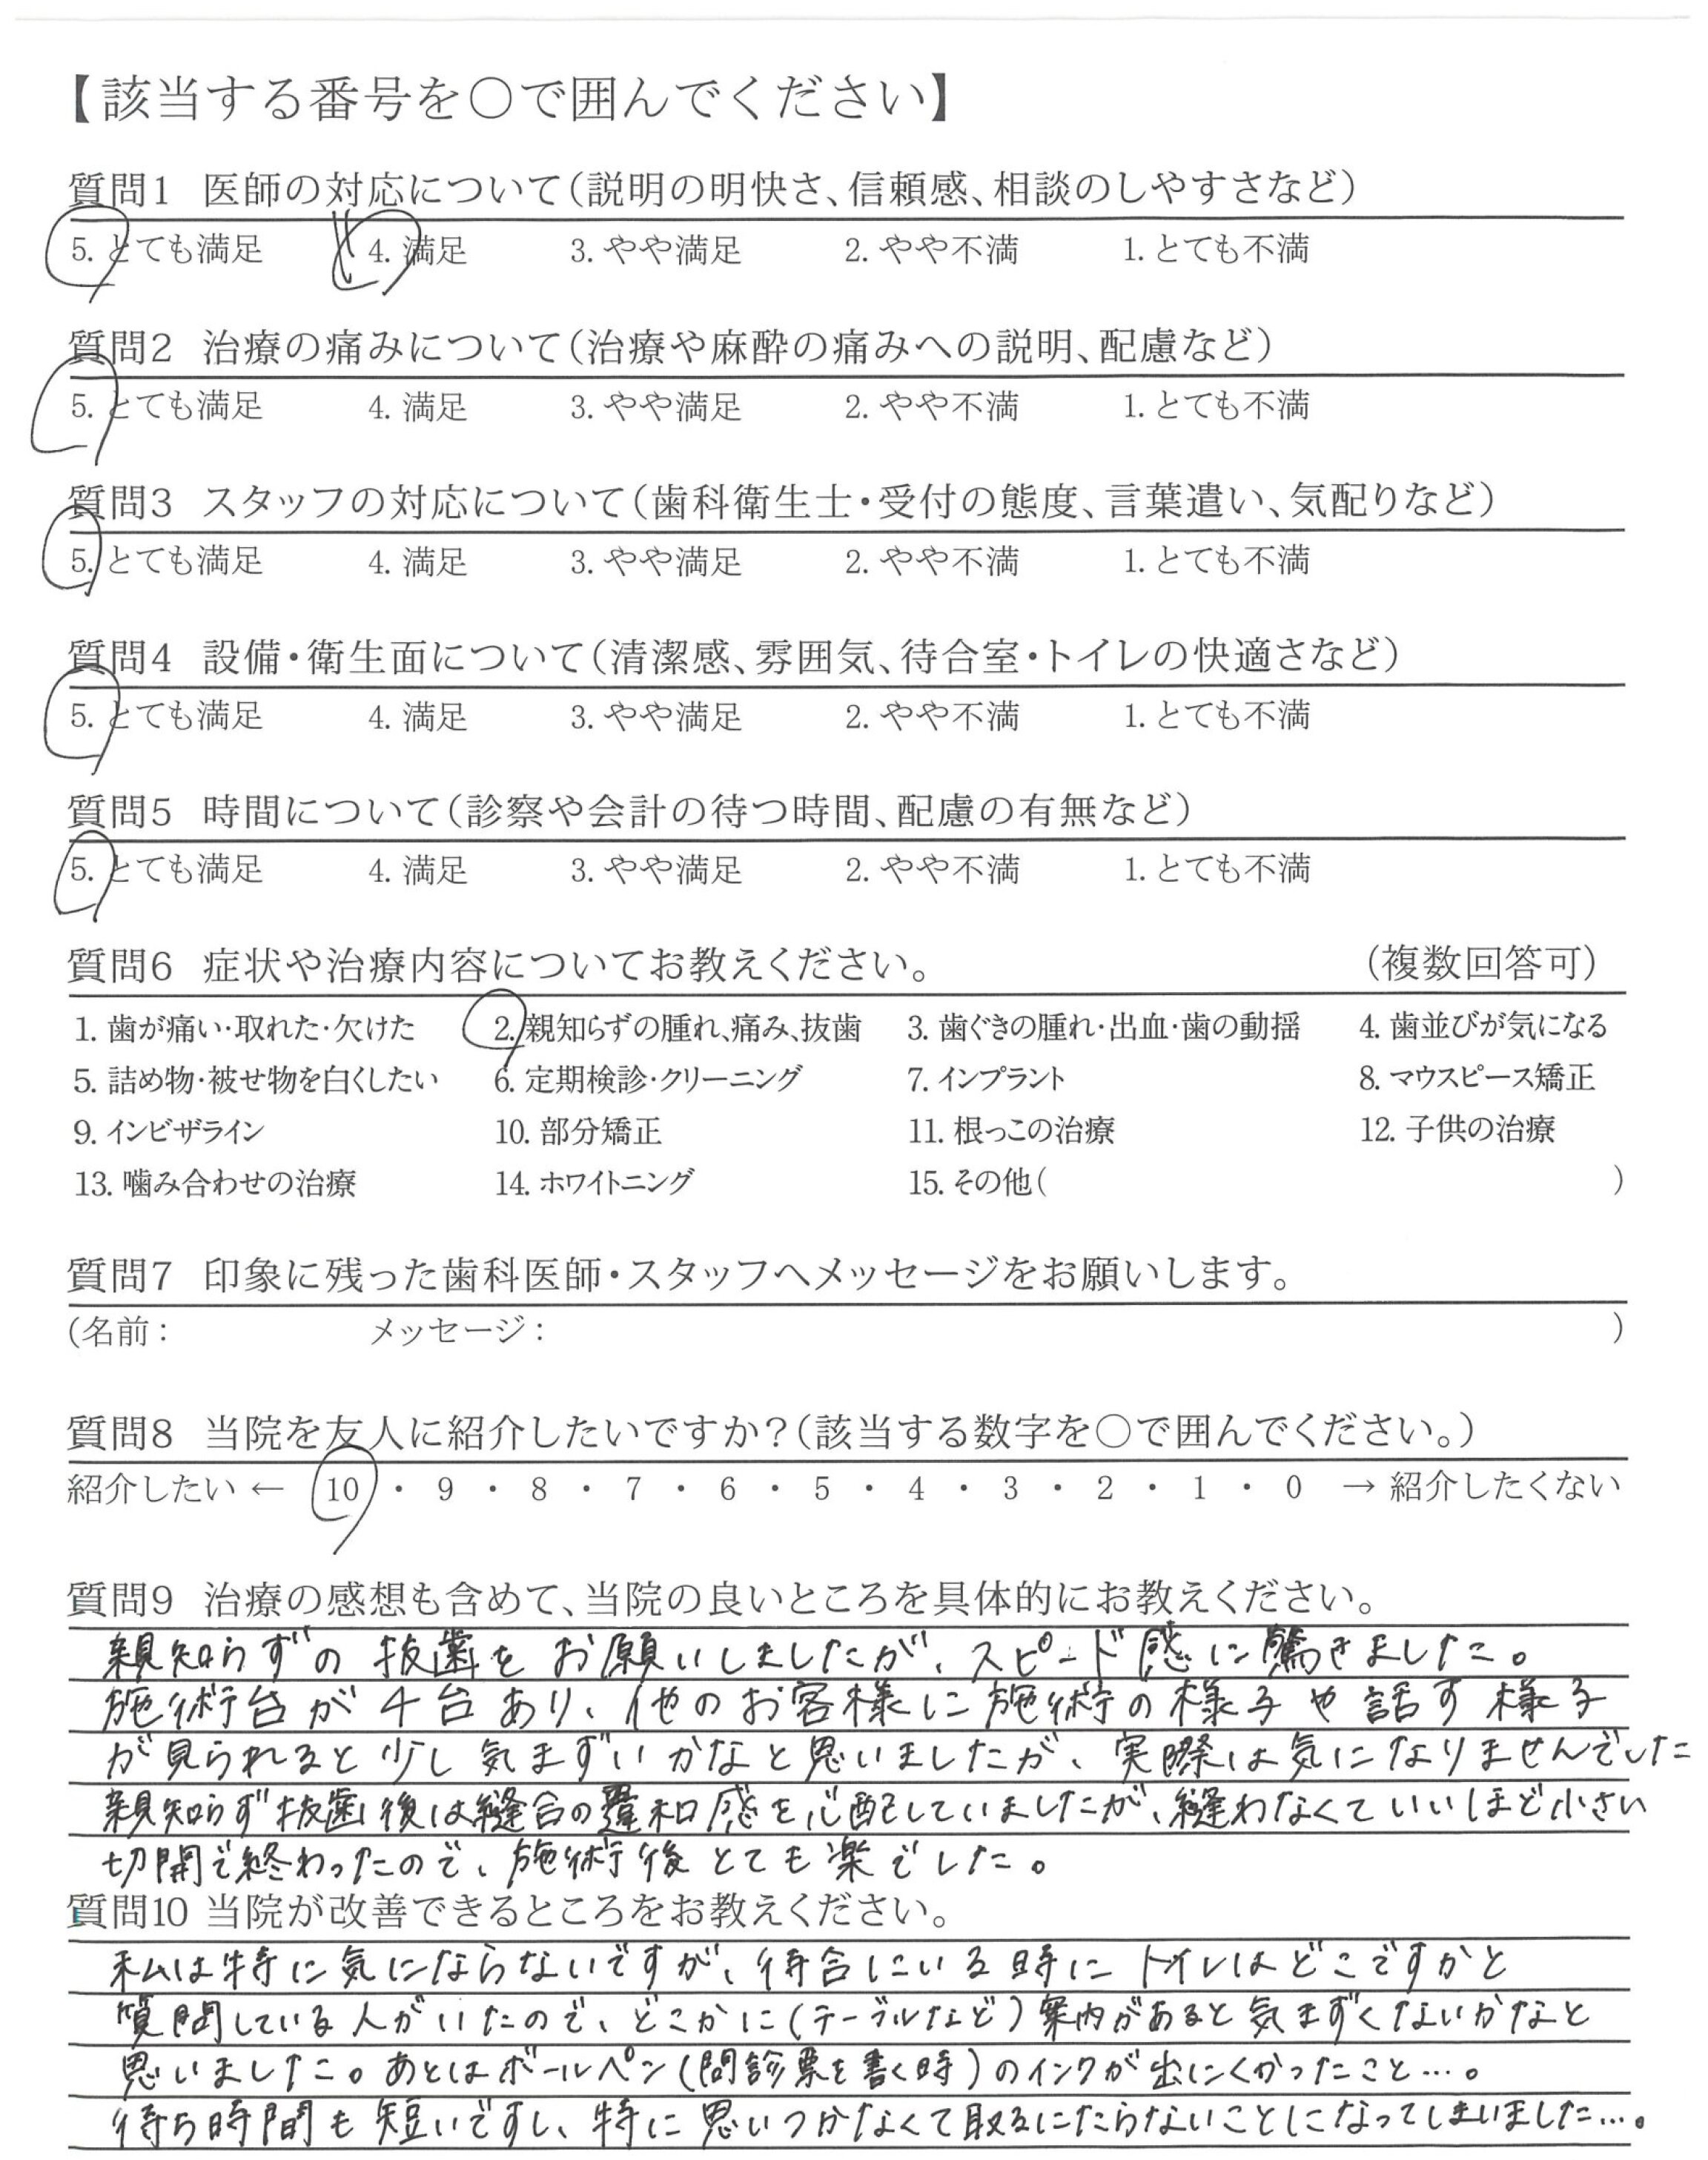 【該当する番号を○で囲んでください】
質問1 医師の対応について(説明の明快さ、信頼感、相談のしやすさなど)
5. とても満足 4. 満足 3. やや満足 2. やや不満 1. とても不満
質問2 治療の痛みについて(治療や麻酔の痛みへの説明、配慮など)
5. とても満足 4. 満足 3. やや満足 2. やや不満 1. とても不満
質問3 スタッフの対応について(歯科衛生士・受付の態度、言葉遣い、気配りなど)
5. とても満足 4. 満足 3. やや満足 2. やや不満 1. とても不満
質問4 設備・衛生面について(清潔感、雰囲気、待合室・トイレの快適さなど)
5. とても満足 4. 満足 3. やや満足 2. やや不満 1. とても不満
質問5 時間について(診察や会計の待つ時間、配慮の有無など)
5. とても満足 4. 満足 3. やや満足 2. やや不満 1. とても不満
質問6 症状や治療内容についてお教えください。 (複数回答可)
1. 歯が痛い・取れた・欠けた 2. 親知らずの腫れ、痛み、抜歯 3. 歯ぐきの腫れ・出血・歯の動揺 4. 歯並びが気になる
5. 詰め物・被せ物を白くしたい 6. 定期検診・クリーニング 7. インプラント 8. マウスピース矯正
9. インビザライン 10. 部分矯正 11. 根っこの治療 12. 子供の治療
13. 噛み合わせの治療 14. ホワイトニング 15. その他( )
質問7 印象に残った歯科医師・スタッフへメッセージをお願いします。
(名前: メッセージ: )
質問8 当院を友人に紹介したいですか?(該当する数字を○で囲んでください。)
紹介したい ← 10 ・ 9 ・ 8 ・ 7 ・ 6 ・ 5 ・ 4 ・ 3 ・ 2 ・ 1 ・ 0 → 紹介したくない
質問9 治療の感想も含めて、当院の良いところを具体的にお教えください。
親知らずの抜歯をお願いしましたが、スピード感に驚きました。
施術台が4台あり、他のお客様に施術の様子や話す様子
が見られると少し気まずいかなと思いましたが、実際は気になりませんでした
親知らず抜歯後は縫合の違和感を心配していましたが、縫わなくていいほど小さい
切開で終わったので、施術後とても楽でした。
質問10 当院が改善できるところをお教えください。
私は特に気にならないですが、待合にいる時にトイレはどこですかと
質問している人がいたので、どこかに(テーブルなど)案内があると気まずくないかなと
思いました。あとはボールペン(問診票を書く時)のインクが出にくかったこと…。
待ち時間も短いですし、特に思いつかなくて取るにたらないことになってしまいました…。